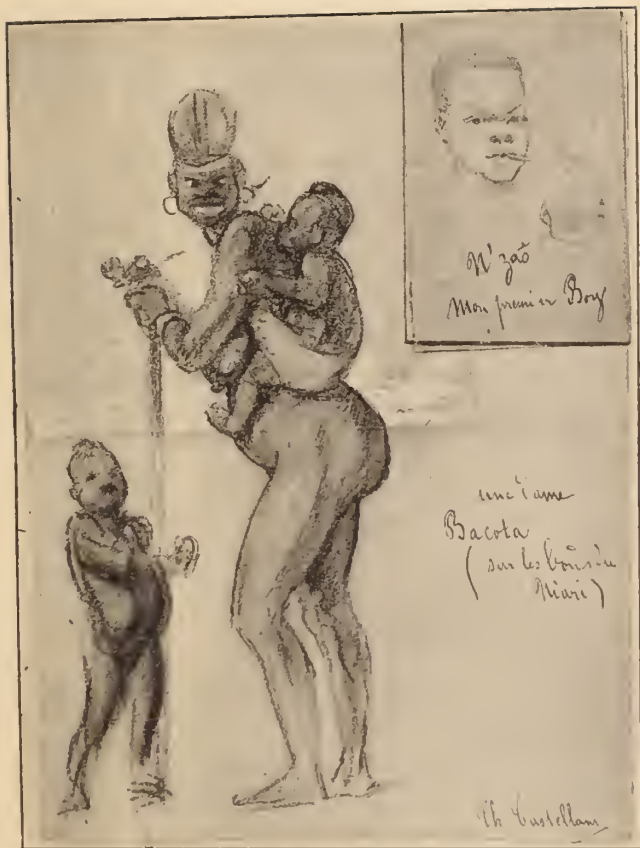 N'zaô
Mon premier Boy
une dame
Bacota
(sur les bords du
Niari)
Ch Castellani